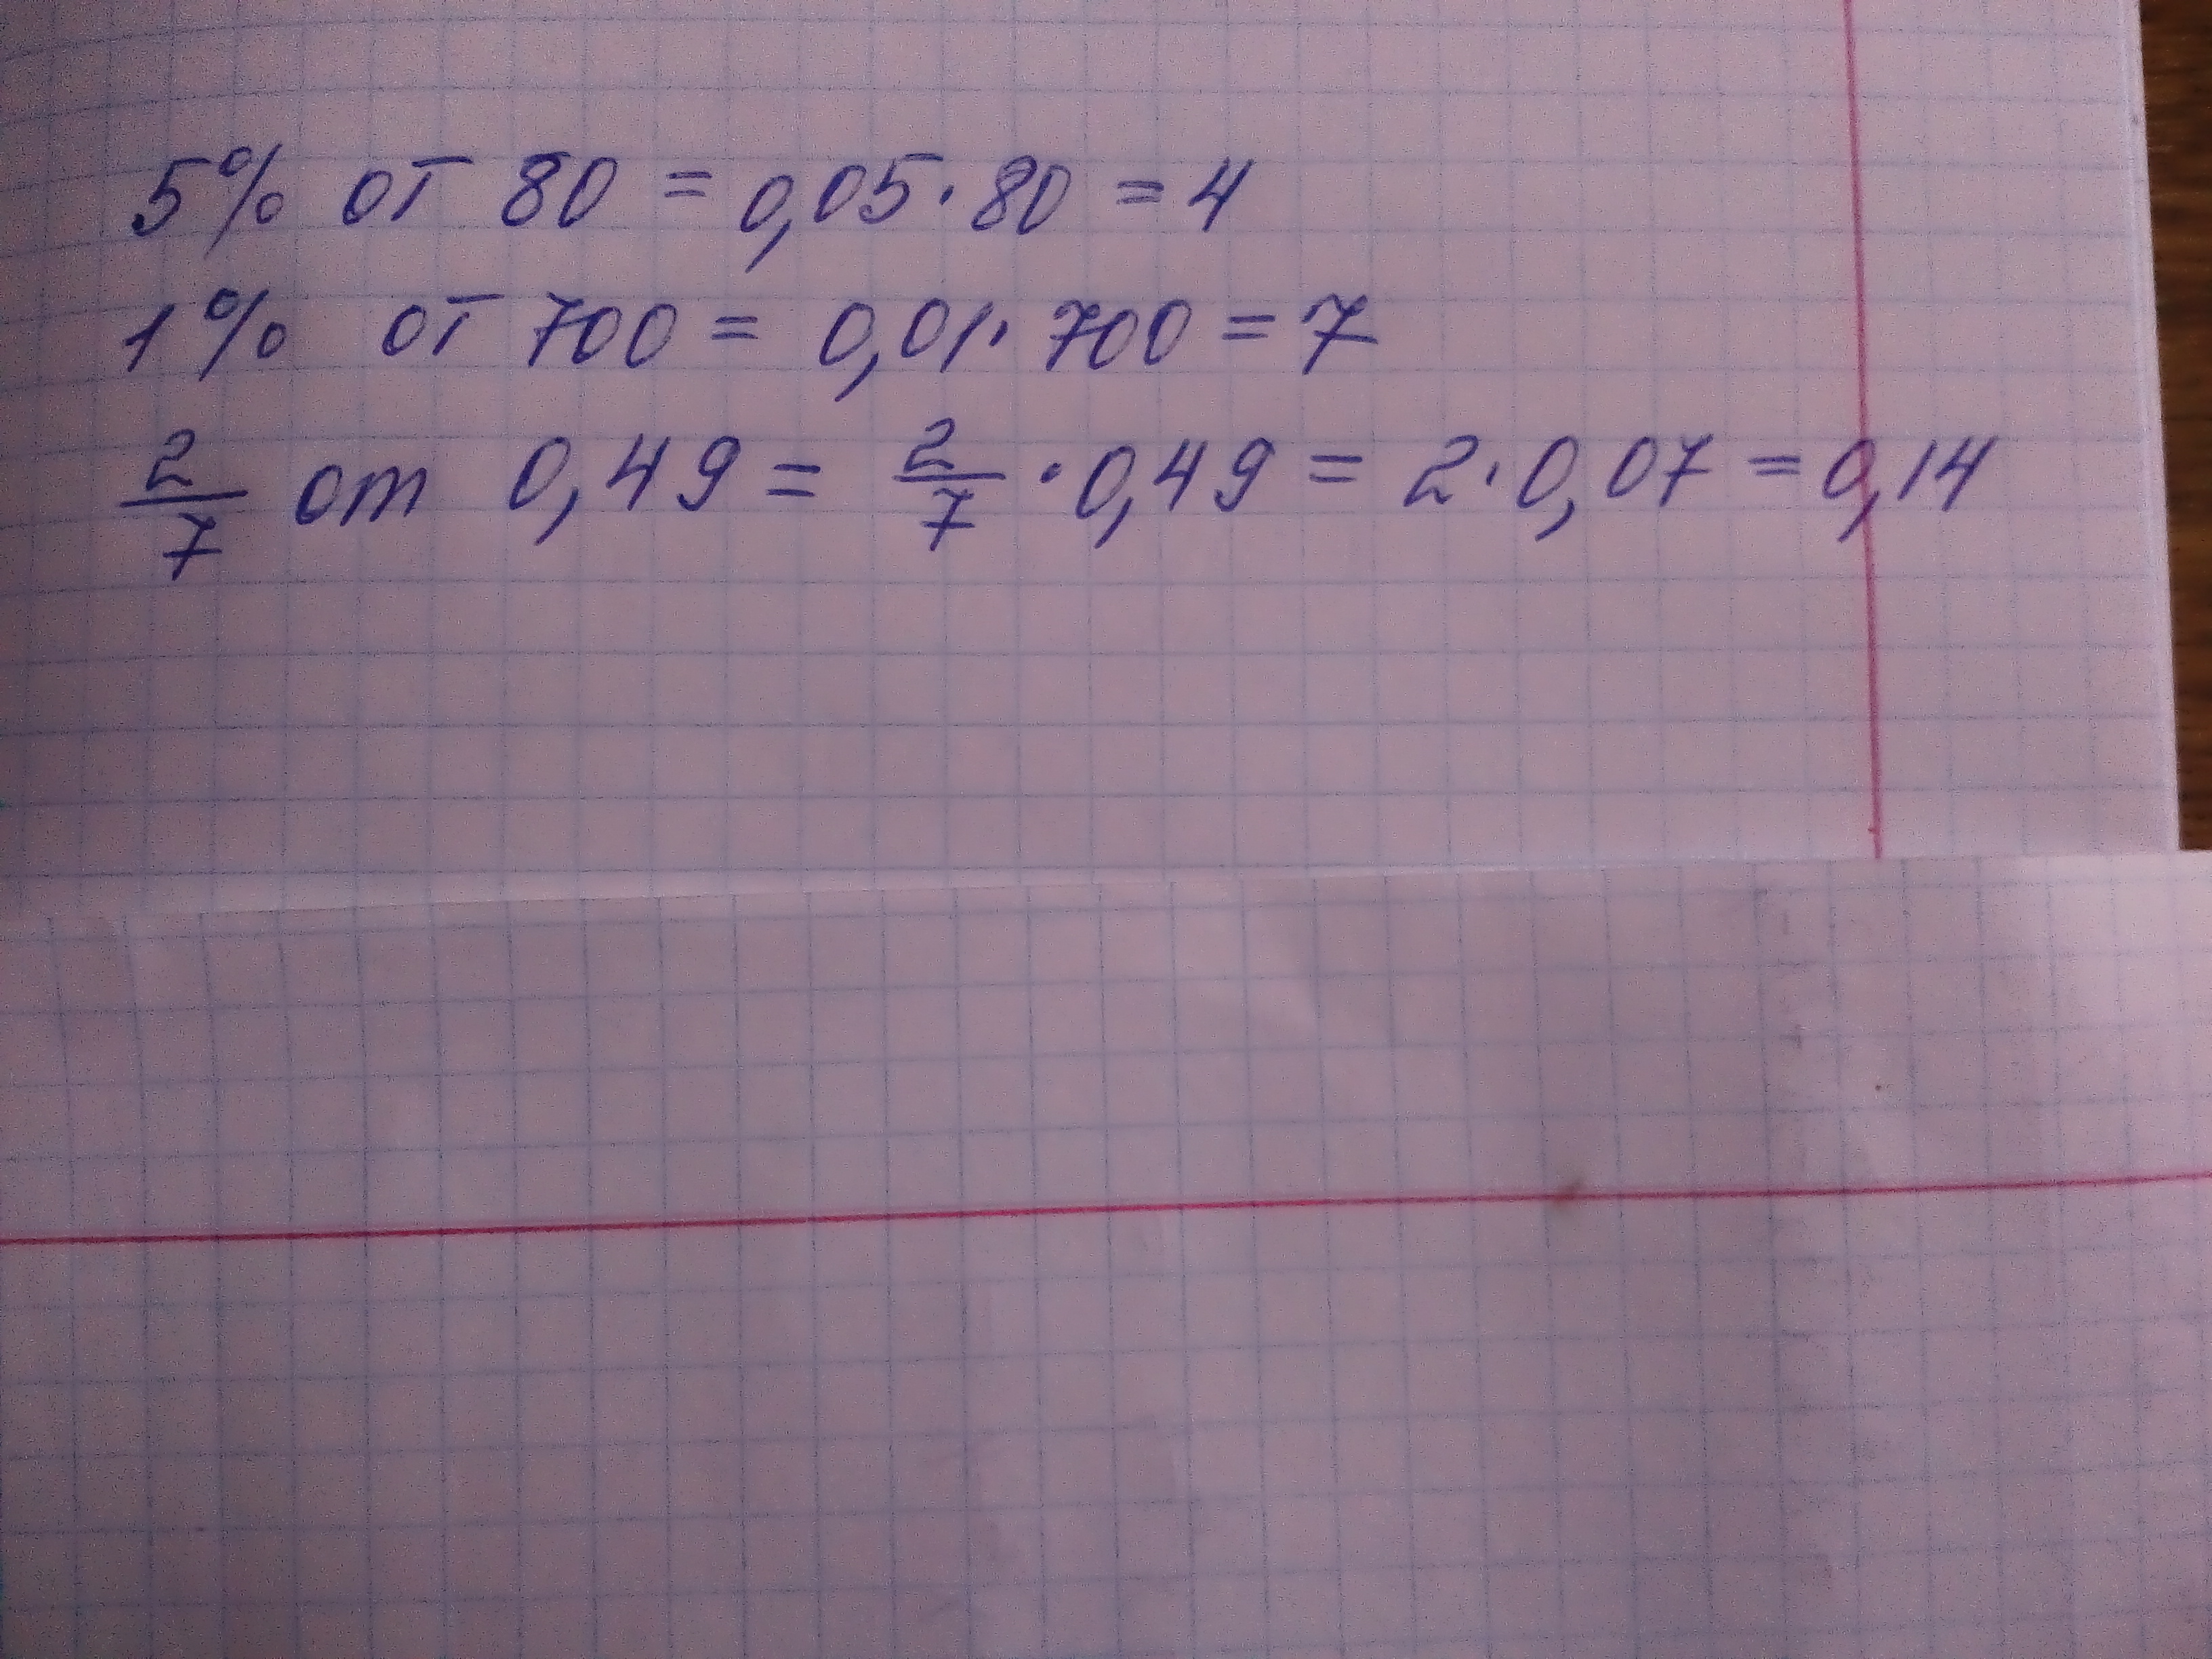 5% от 80 = 0,05 · 80 = 4
1% от 700 = 0,01 · 700 = 7
2/7 от 0,49 = 2/7 · 0,49 = 2 · 0,07 = 0,14